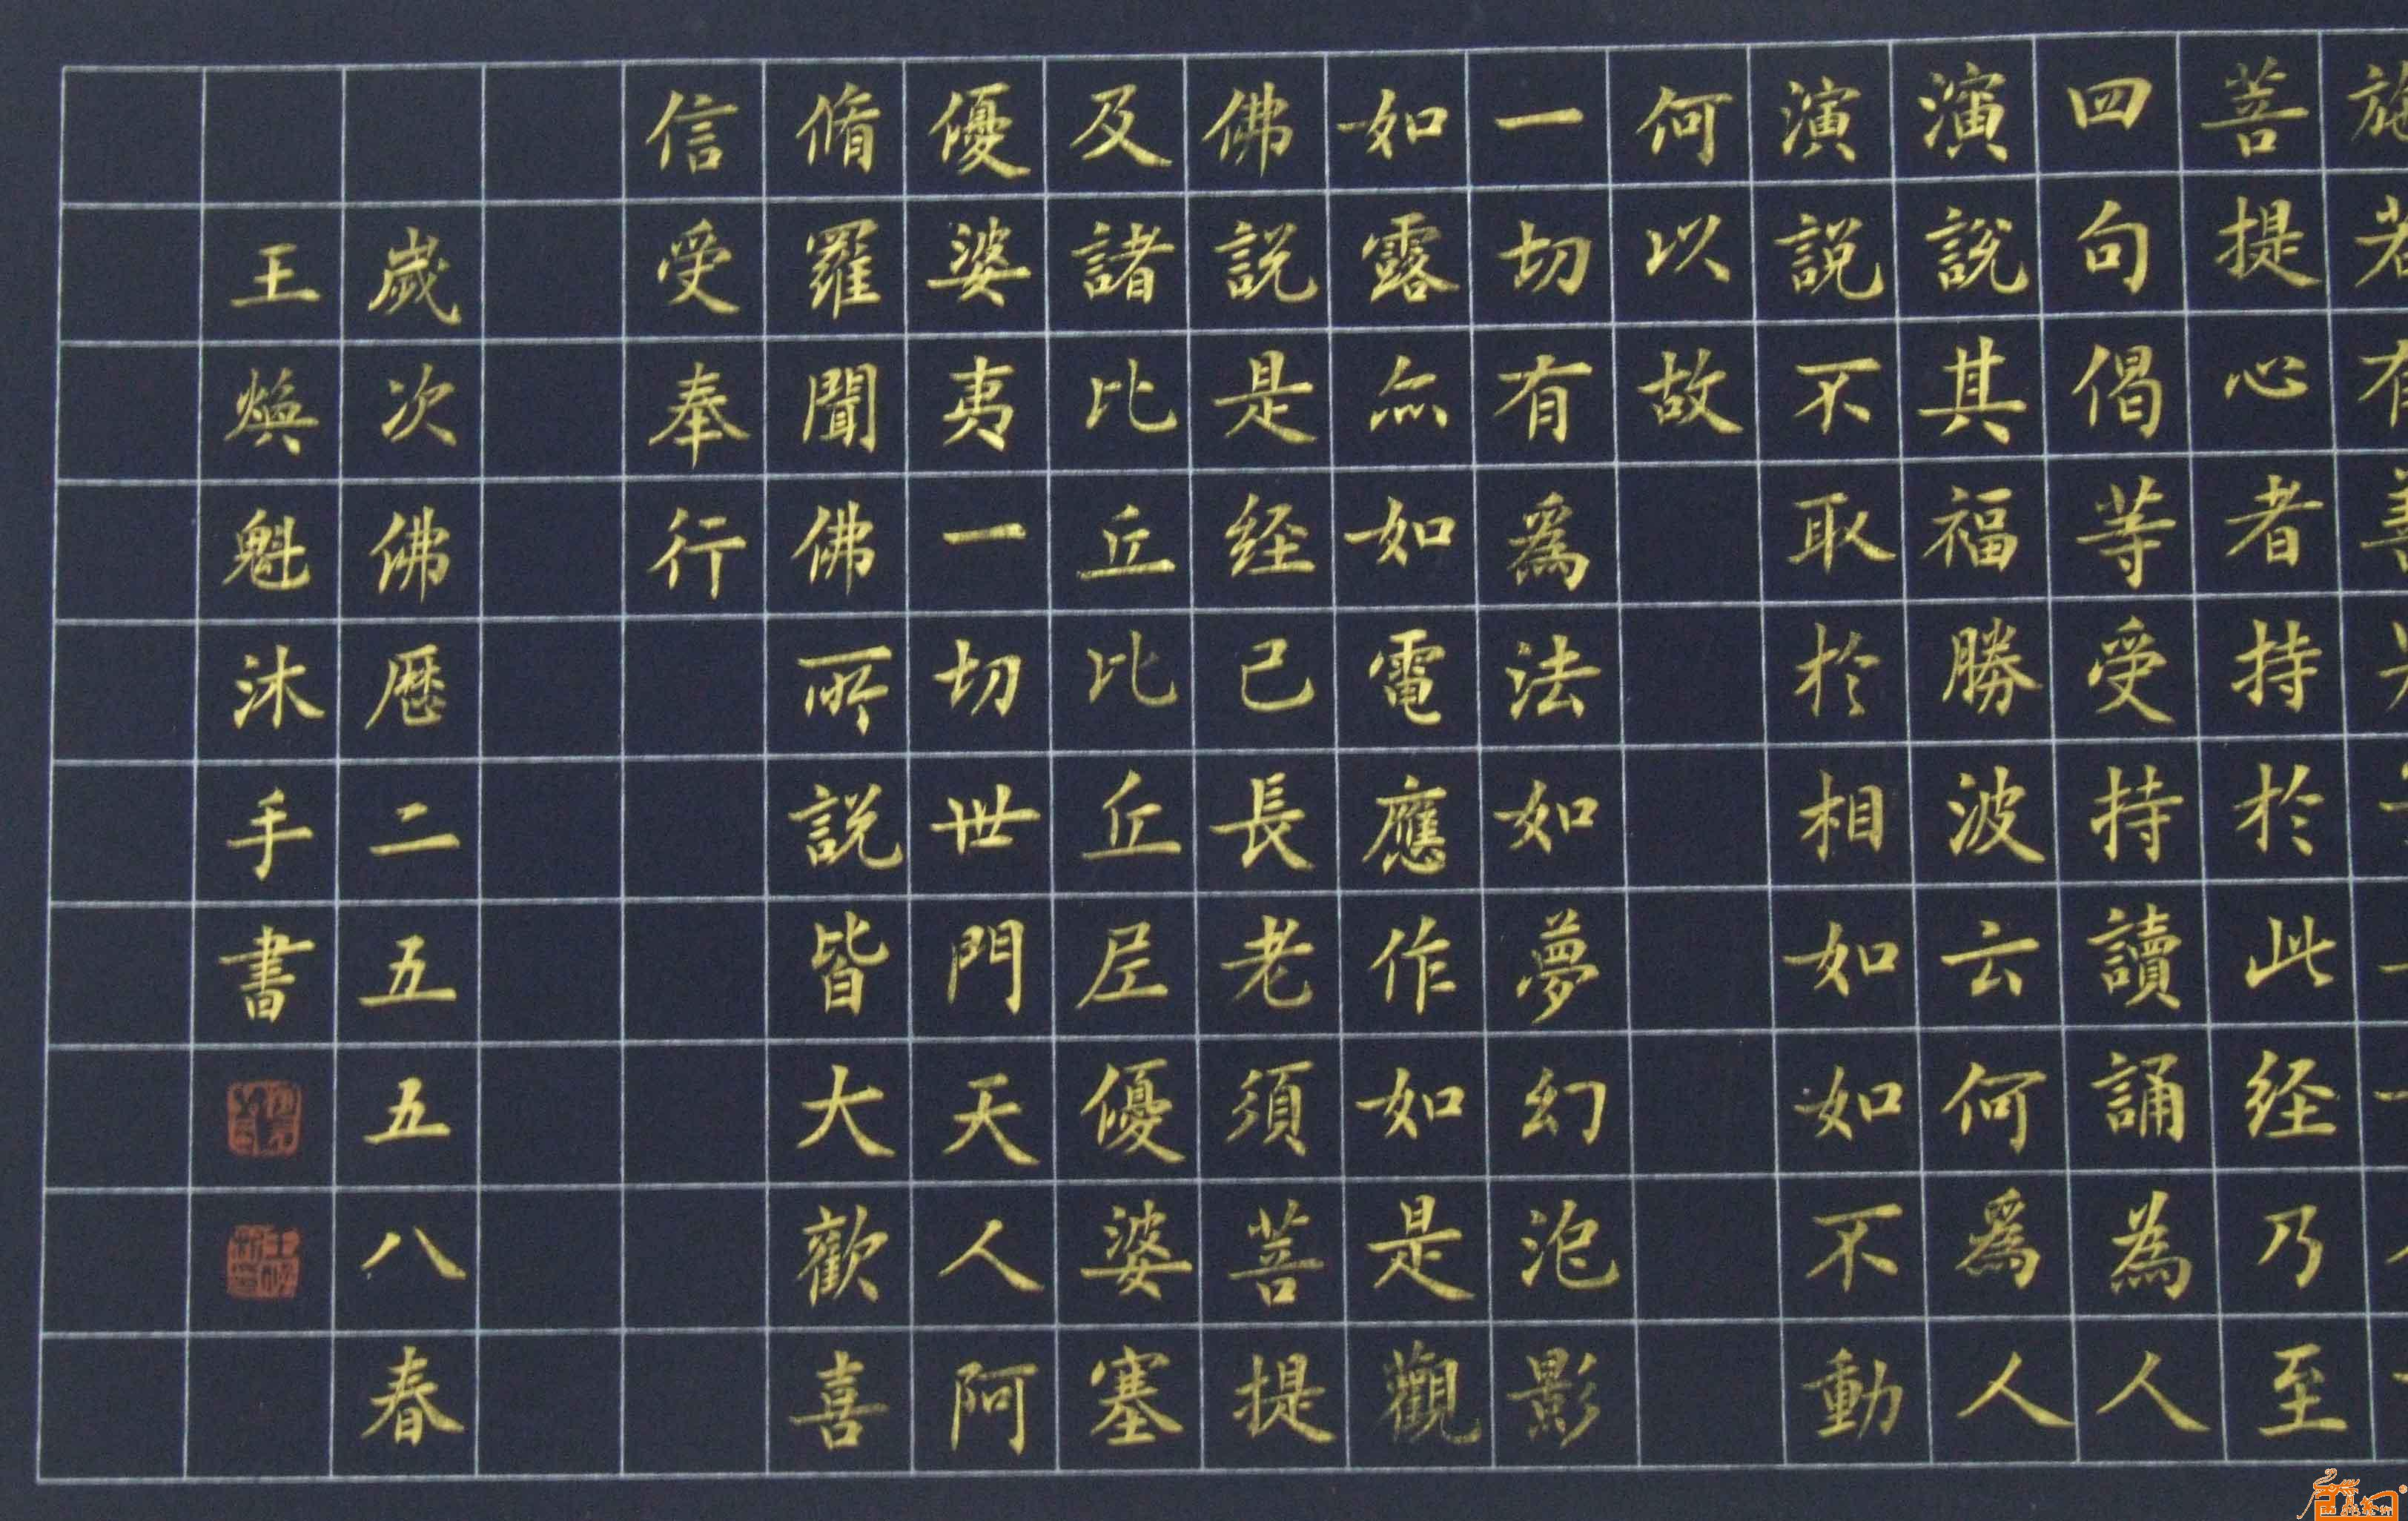 菩提心者持於此经乃至
四句偈等受持讀誦為人
演說其福勝波云何爲人
演説不取於相如如不動
何以故
一切有爲法如夢幻泡影
如露亦如電應作如是觀
佛説是经已長老須菩提
及諸比丘比丘尼優婆塞
優婆夷一切世門天人阿
脩羅聞佛所説皆大歡喜
信受奉行
歲次佛曆二五五八春
王焕魁沐手書